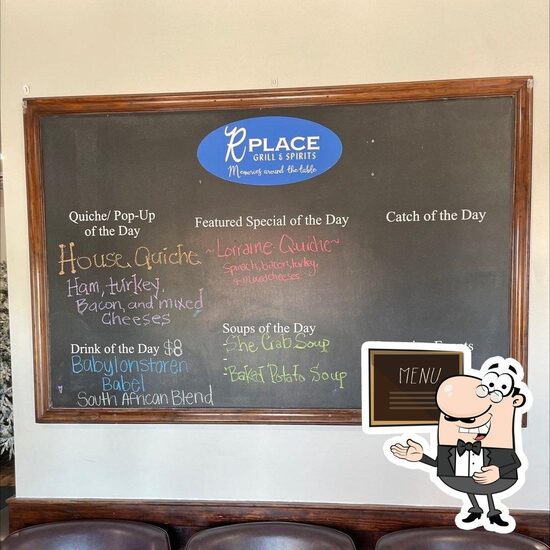 R PLACE
GRILL & SPIRITS
Memories around the table
Quiche/ Pop-Up
of the Day
House Quiche
Ham, turkey,
Bacon, and mixed
Cheeses
Drink of the Day $8
Babylonstoren
Babel
South African Blend
Featured Special of the Day
~Lorraine Quiche~
Spinach, bacon, turkey,
+ mixed cheeses
Soups of the Day
-She Crab Soup
-Baked Potato Soup
Catch of the Day
Events
MENU